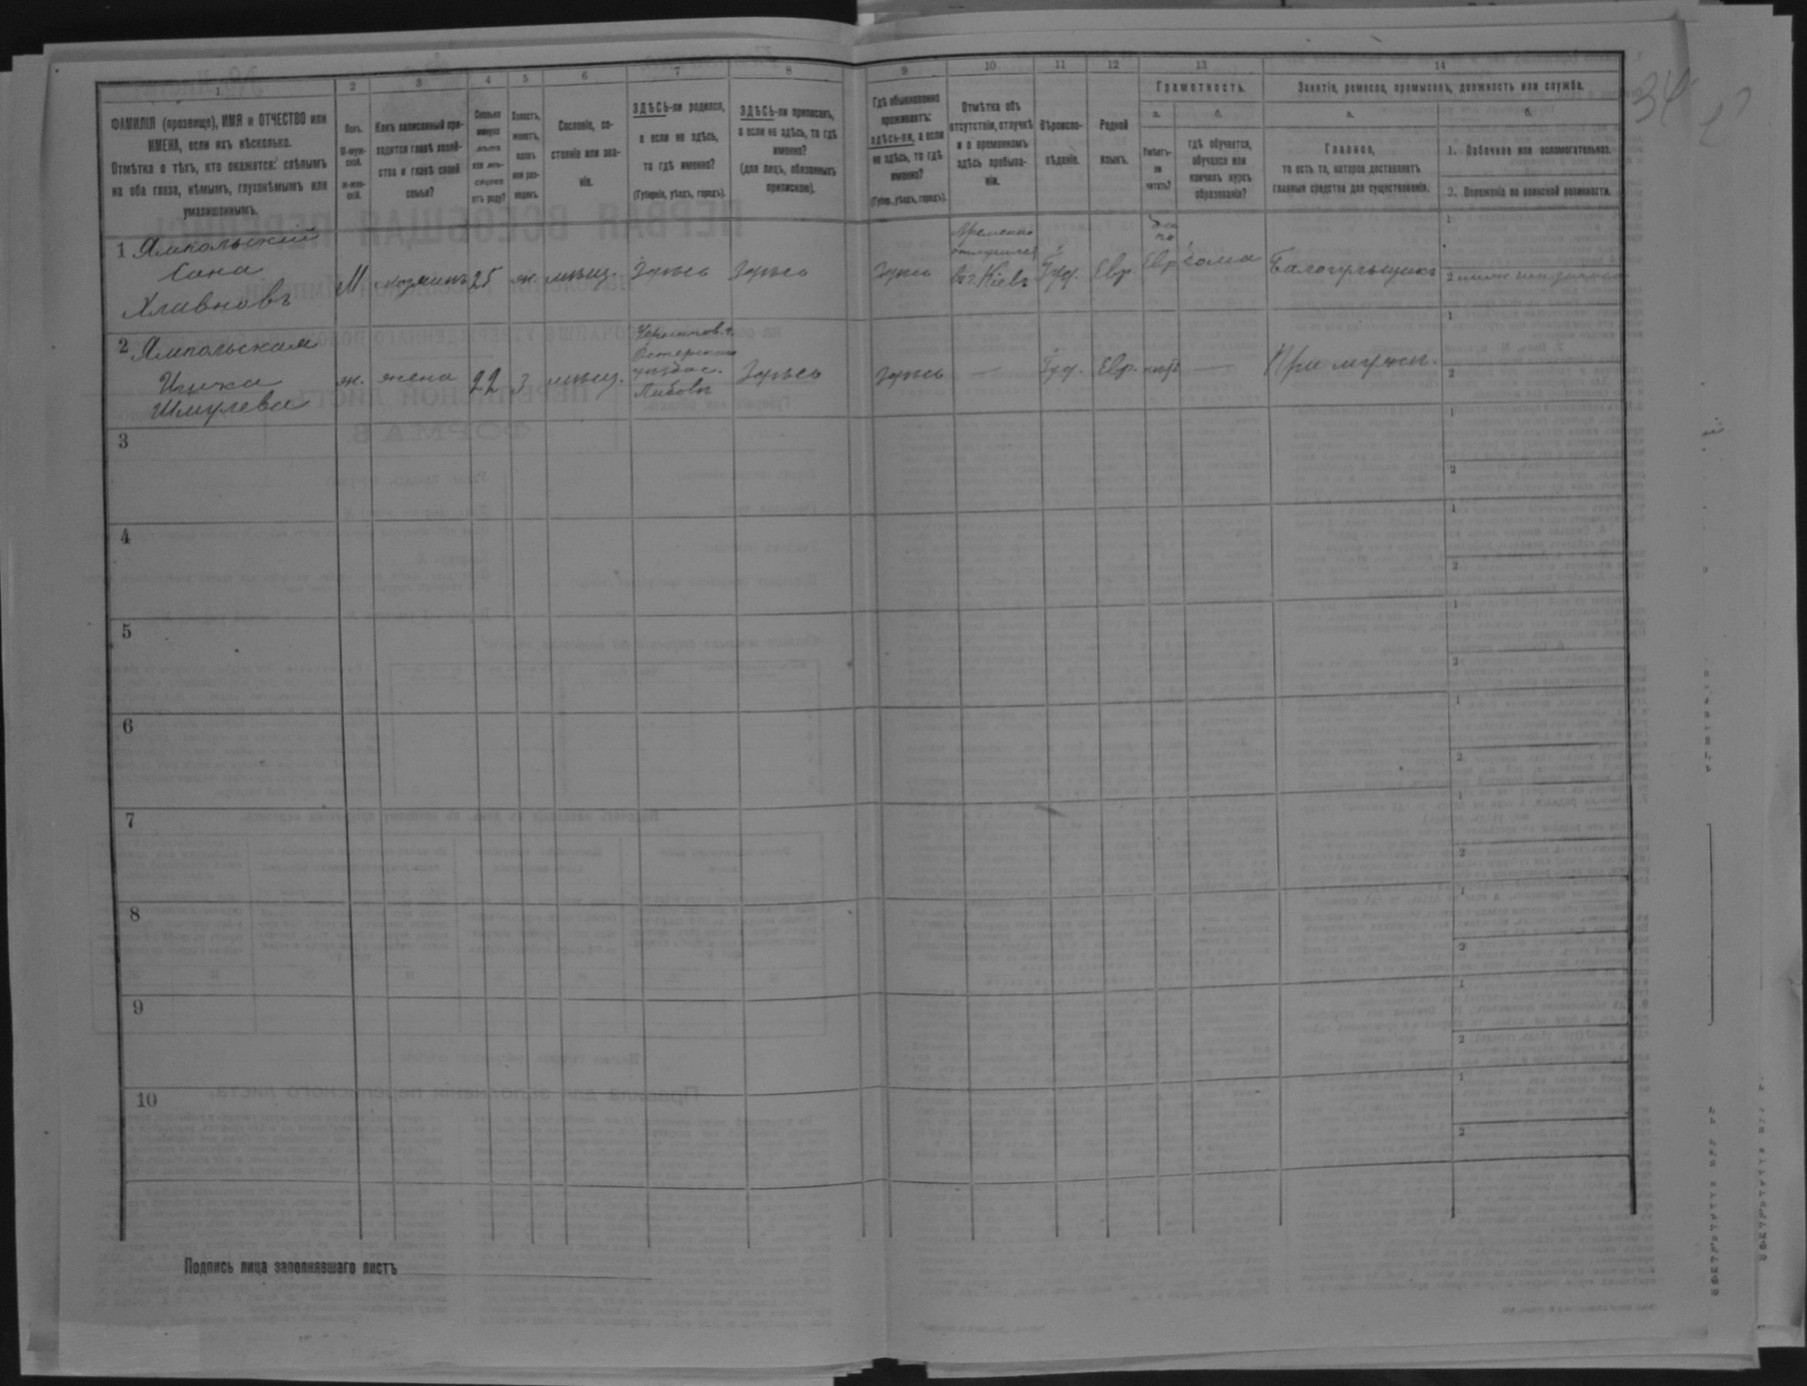 1
2
3
4
5
6
7
8
9
10
11
12
13
14
ФАМИЛІЯ (прозвище), ИМЯ и ОТЧЕСТВО или
ИМЕНА, если ихъ нѣсколько.
Отмѣтка о тѣхъ, кто окажется: слѣпымъ
на оба глаза, нѣмымъ, глухонѣмымъ или
умалишеннымъ.
Полъ.
М-муж-
ской.
ж-жен-
скій.
Какъ записанный при-
ходится главѣ хозяй-
ства и главѣ своей
семьи?
Сколько
минуло
лѣтъ
или мѣ-
сяцевъ
отъ роду?
Холостъ,
женатъ,
вдовъ
или раз-
веденъ.
Сословіе, со-
стояніе или зва-
ніе.
ЗДѢСЬ-ли родился,
а если не здѣсь,
то гдѣ именно?
(Губернія, уѣздъ, городъ).
ЗДѢСЬ-ли приписанъ,
а если не здѣсь, то гдѣ
именно?
(для лицъ, обязанныхъ
припискою).
Гдѣ обыкновенно
проживаетъ:
здѣсь-ли, а если
не здѣсь, то гдѣ
именно?
(Губер., уѣздъ, городъ).
Отмѣтка объ
отсутствіи, отлучкѣ
и о временномъ
здѣсь пребыва-
ніи.
Вѣроиспо-
вѣданіе.
Родной
языкъ.
Грамотность.
а.
Умѣетъ-
ли
читать?
б.
гдѣ обучается,
обучался или
кончилъ курсъ
образованія?
Занятіе, ремесло, промыселъ, должность или служба.
а.
Главное,
то есть то, которое доставляетъ
главныя средства для существованія.
б.
1. Побочное или вспомогательное.
2. Положеніе по воинской повинности.
34
1 Ямпольскій
Хливновъ
М
хозяинъ
25
ж.
мѣщ.
Здѣсь
Здѣсь
Здѣсь
Временно
отлучился
въ г. Кіевъ
Іуд.
Евр.
да
по
Евр
дома
1
2
2 Ямпольская
Шмулева
ж.
жена
22
З
мѣщ.
Черниговъ.
Остерскаго
Здѣсь
Здѣсь
—
Іуд.
Евр.
нѣтъ
—
При мужѣ.
1
2
3
1
2
4
1
2
5
1
2
6
1
2
7
1
2
8
1
2
9
1
2
10
1
2
Подпись лица заполнявшаго листъ